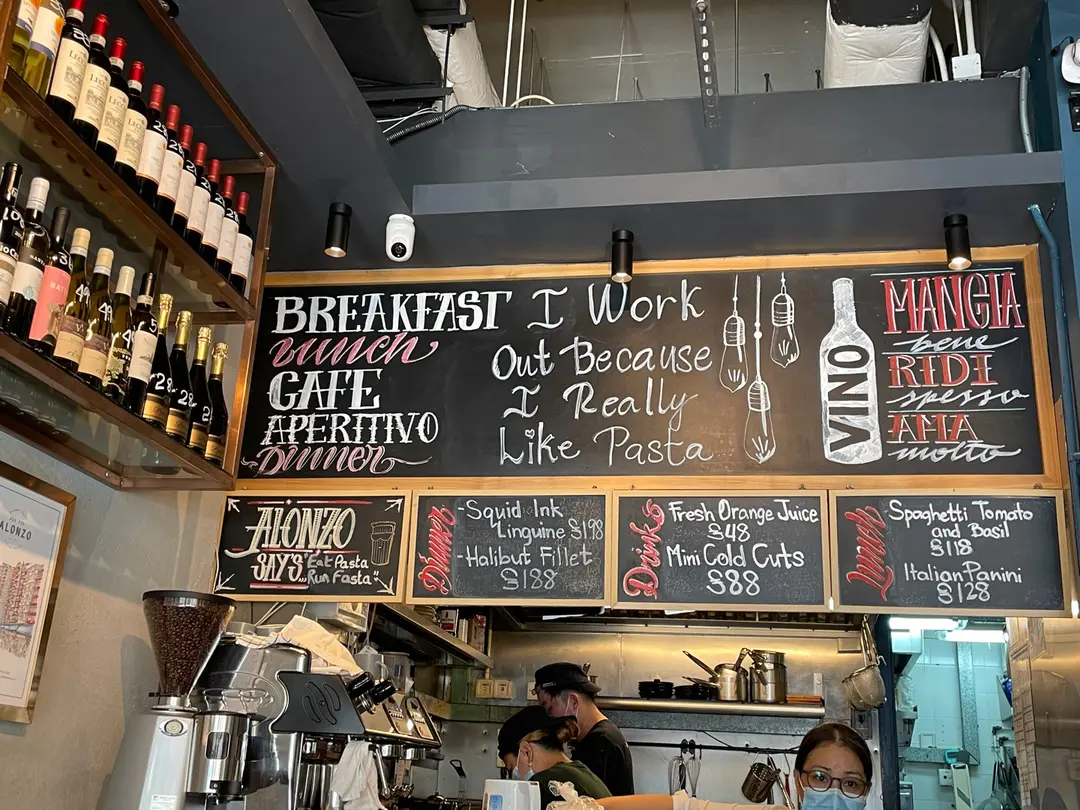 BREAKFAST
Lunch
CAFE
APERITIVO
Dinner
I Work
Out Because
I Really
Like Pasta
VINO
MANGIA
bene
RIDI
spesso
AMA
molto
ALONZO
SAYS...
"Eat Pasta
Run Fasta"
Dinner
-Squid Ink
Linguine $198
-Halibut Fillet
$188
Drinks
Fresh Orange Juice
$48
Mini Cold Cuts
$88
Lunch
Spaghetti Tomato
and Basil
$118
Italian Panini
$128
ALONZO